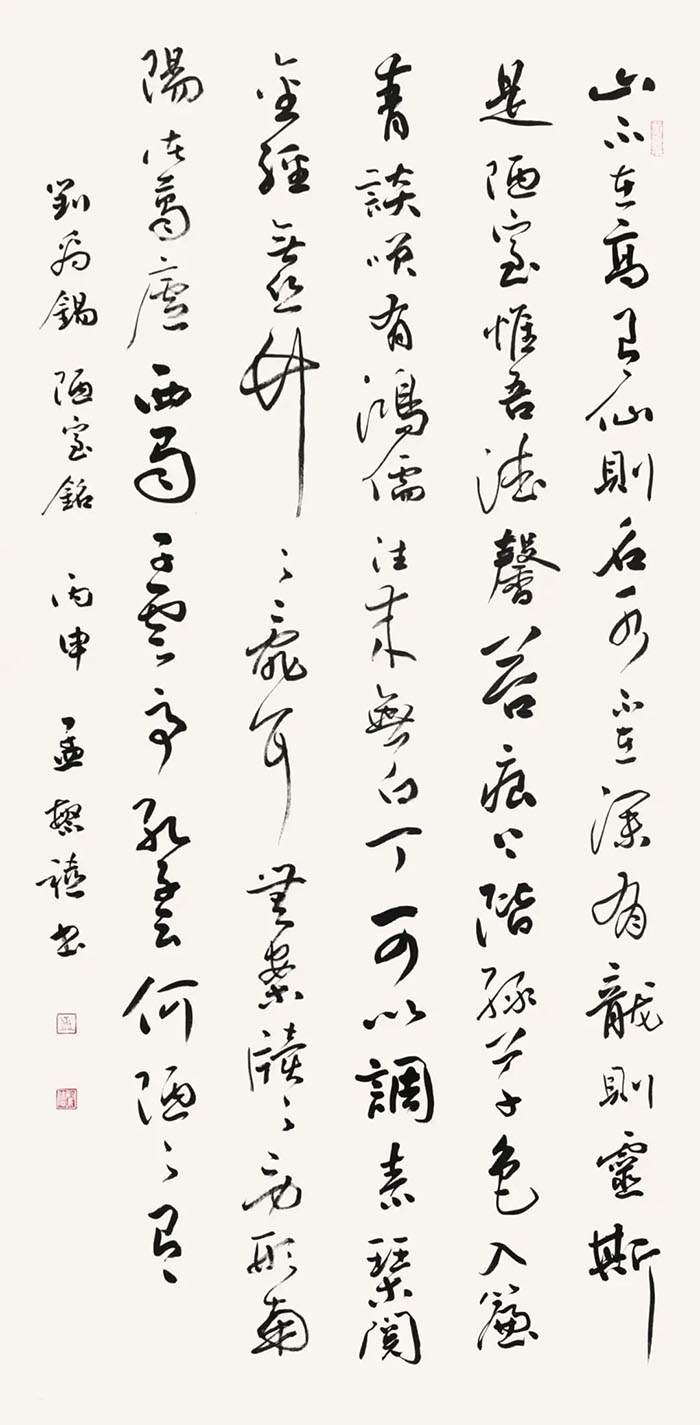 山不在高有仙則名水不在深有龍則靈斯
是陋室惟吾德馨苔痕上階緑草色入簾
青談笑有鴻儒往來無白丁可以調素琴閱
金經無絲竹之亂耳無案牘之勞形南
陽諸葛廬西蜀子雲亭孔子云何陋之有
劉禹錫 陋室銘 丙申 孟繁禧書